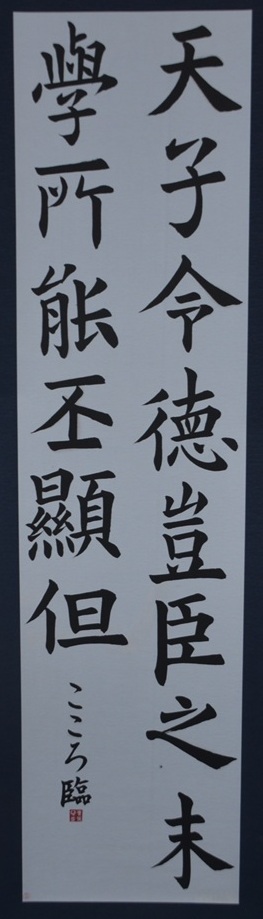 天子令德豈臣之末
學所能丕顯但
こころ臨